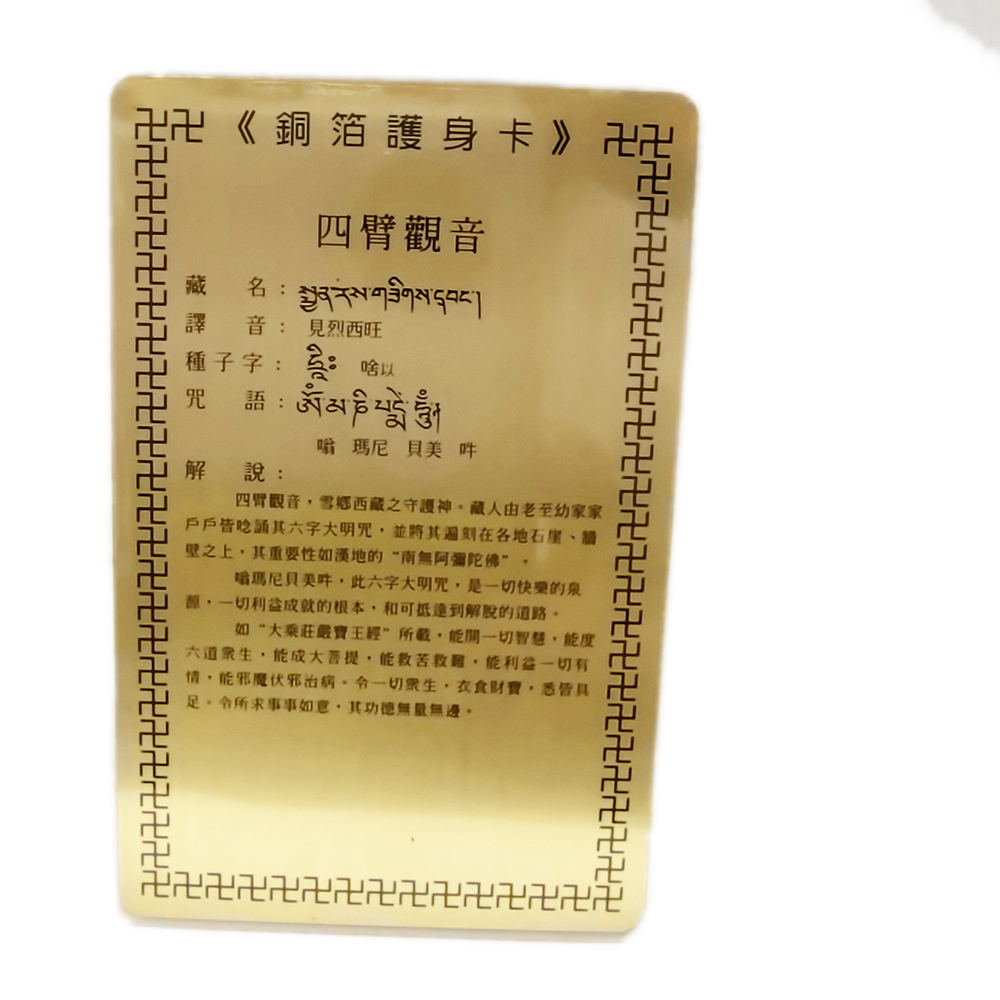 《銅箔護身卡》
四臂觀音
藏名：སྤྱན་རས་གཟིགས་དབང་།
譯音：見烈西旺
種子字：ཧྲཱིཿ 啥以
咒語：ཨོཾ་མ་ཎི་པདྨེ་ཧཱུྃ།
嗡 瑪尼 貝美 吽
解說：
四臂觀音，雪鄉西藏之守護神。藏人由老至幼家家
戶戶皆唸誦其六字大明咒，並將其遍刻在各地石崖、牆
壁之上，其重要性如漢地的“南無阿彌陀佛”。
嗡瑪尼貝美吽，此六字大明咒，是一切快樂的泉
源，一切利益成就的根本，和可抵達到解脫的道路。
如“大乘莊嚴寶王經”所載，能開一切智慧，能度
六道眾生，能成大菩提，能救苦救難，能利益一切有
情，能邪魔伏邪治病。令一切眾生，衣食財寶，悉皆具
足。令所求事事如意，其功德無量無邊。